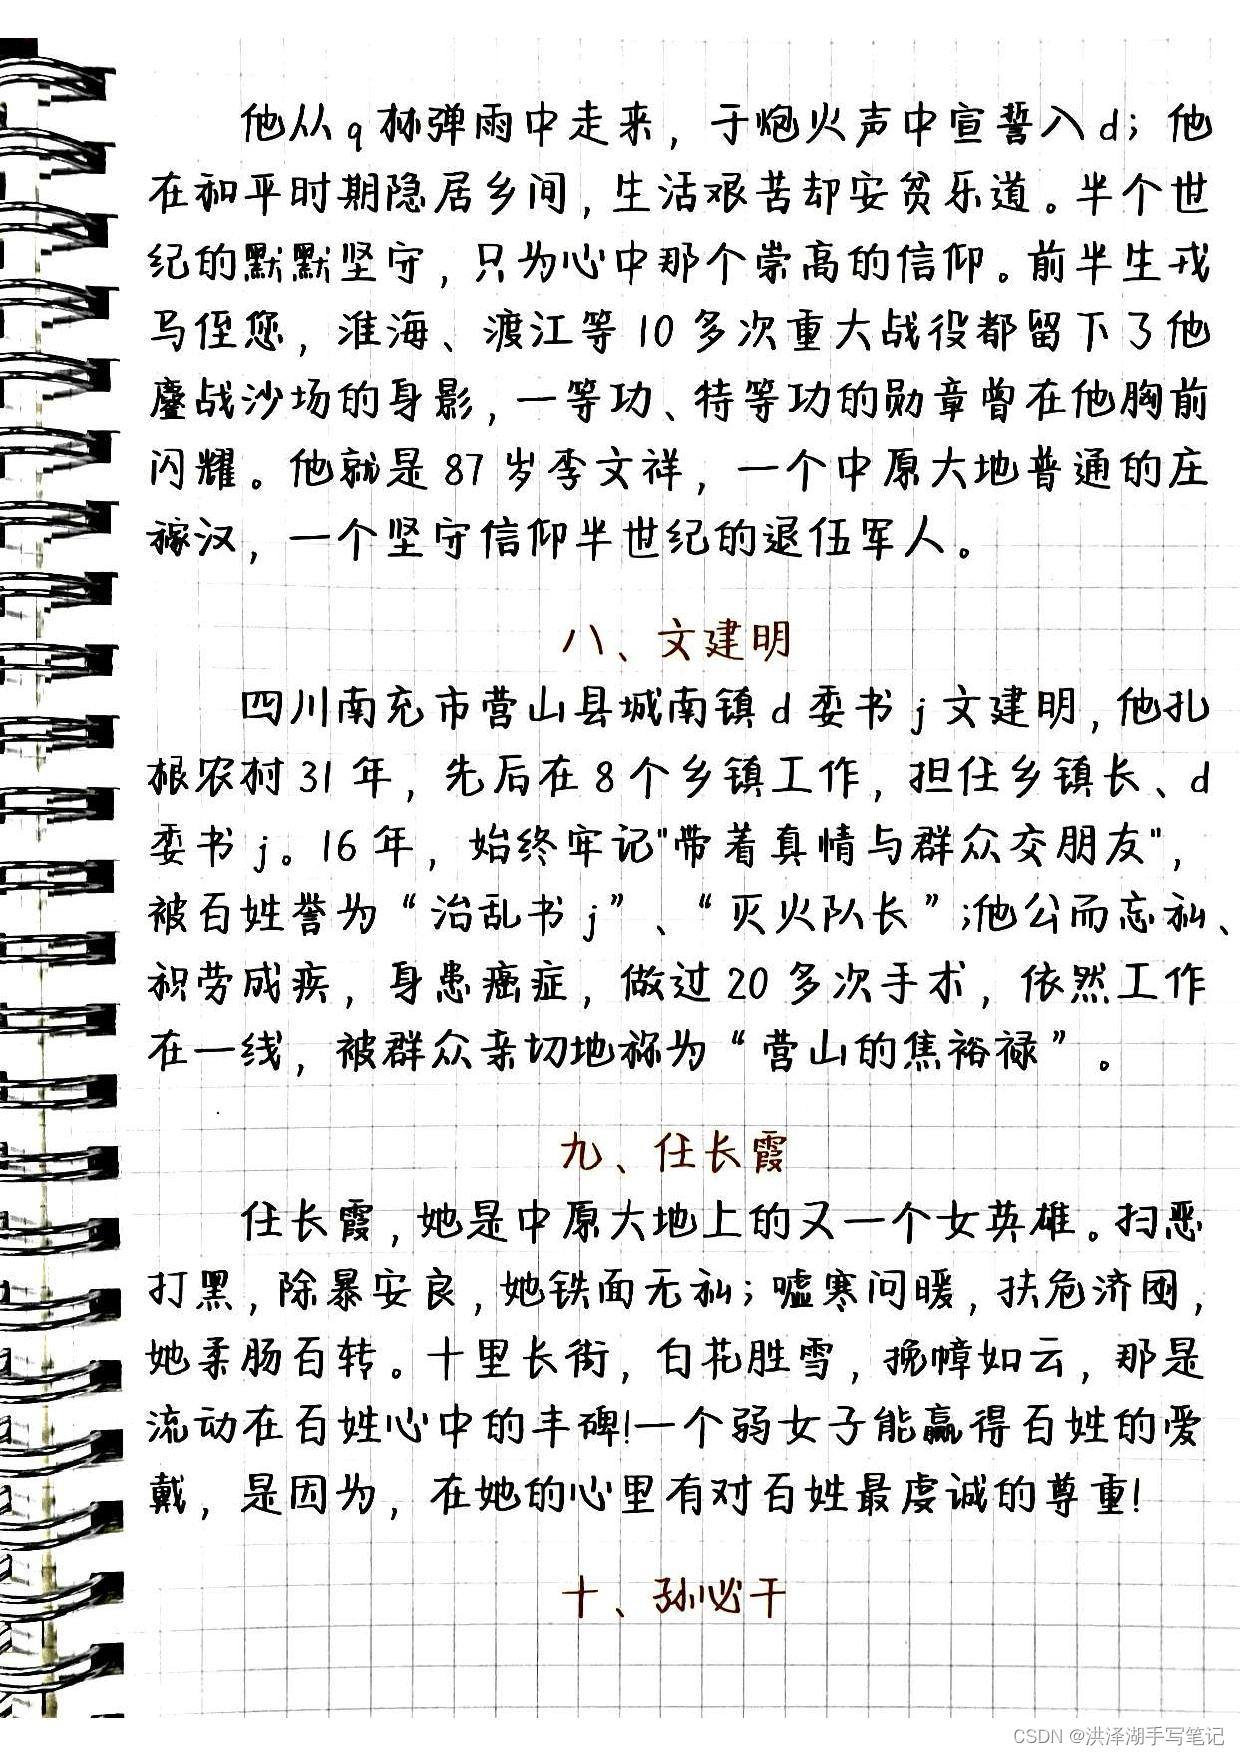 他从q林弹雨中走来，于炮火声中宣誓入d；他
在和平时期隐居乡间，生活艰苦却安贫乐道。半个世
纪的默默坚守，只为心中那个崇高的信仰。前半生戎
马倥偬，淮海、渡江等10多次重大战役都留下了他
鏖战沙场的身影，一等功、特等功的勋章曾在他胸前
闪耀。他就是87岁李文祥，一个中原大地普通的庄
稼汉，一个坚守信仰半世纪的退伍军人。
八、文建明
四川南充市营山县城南镇d委书j文建明，他扎
根农村31年，先后在8个乡镇工作，担任乡镇长、d
委书j。16年，始终牢记"带着真情与群众交朋友"，
被百姓誉为“治乱书j”、“灭火队长”;他公而忘私、
积劳成疾，身患癌症，做过20多次手术，依然工作
在一线，被群众亲切地称为“营山的焦裕禄”。
九、任长霞
任长霞，她是中原大地上的又一个女英雄。扫恶
打黑，除暴安良，她铁面无私；嘘寒问暖，扶危济困，
她柔肠百转。十里长街，白花胜雪，挽幛如云，那是
流动在百姓心中的丰碑!一个弱女子能赢得百姓的爱
戴，是因为，在她的心里有对百姓最虔诚的尊重!
十、孙必干
CSDN @洪泽湖手写笔记